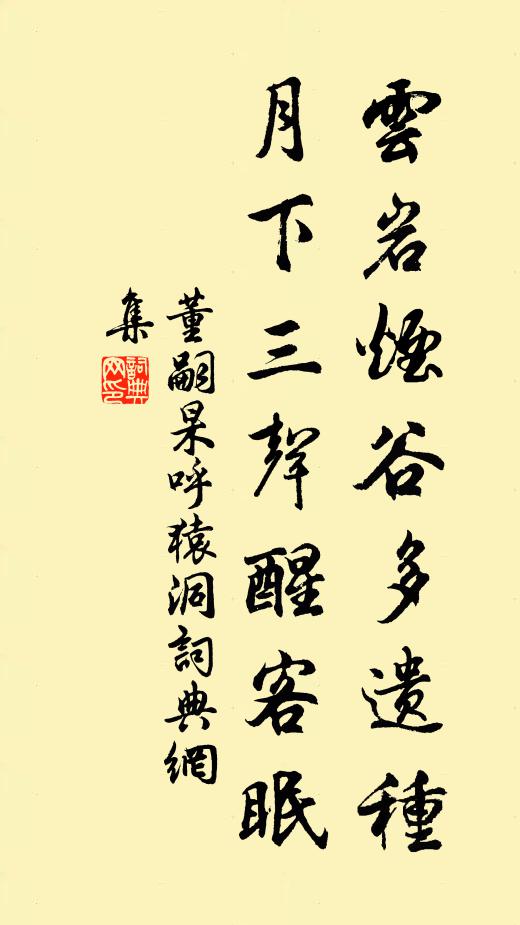 雲岩煙谷多遺種
月下三聲醒客眠
董嗣杲呼猿洞詞典網
集
詞典
网印